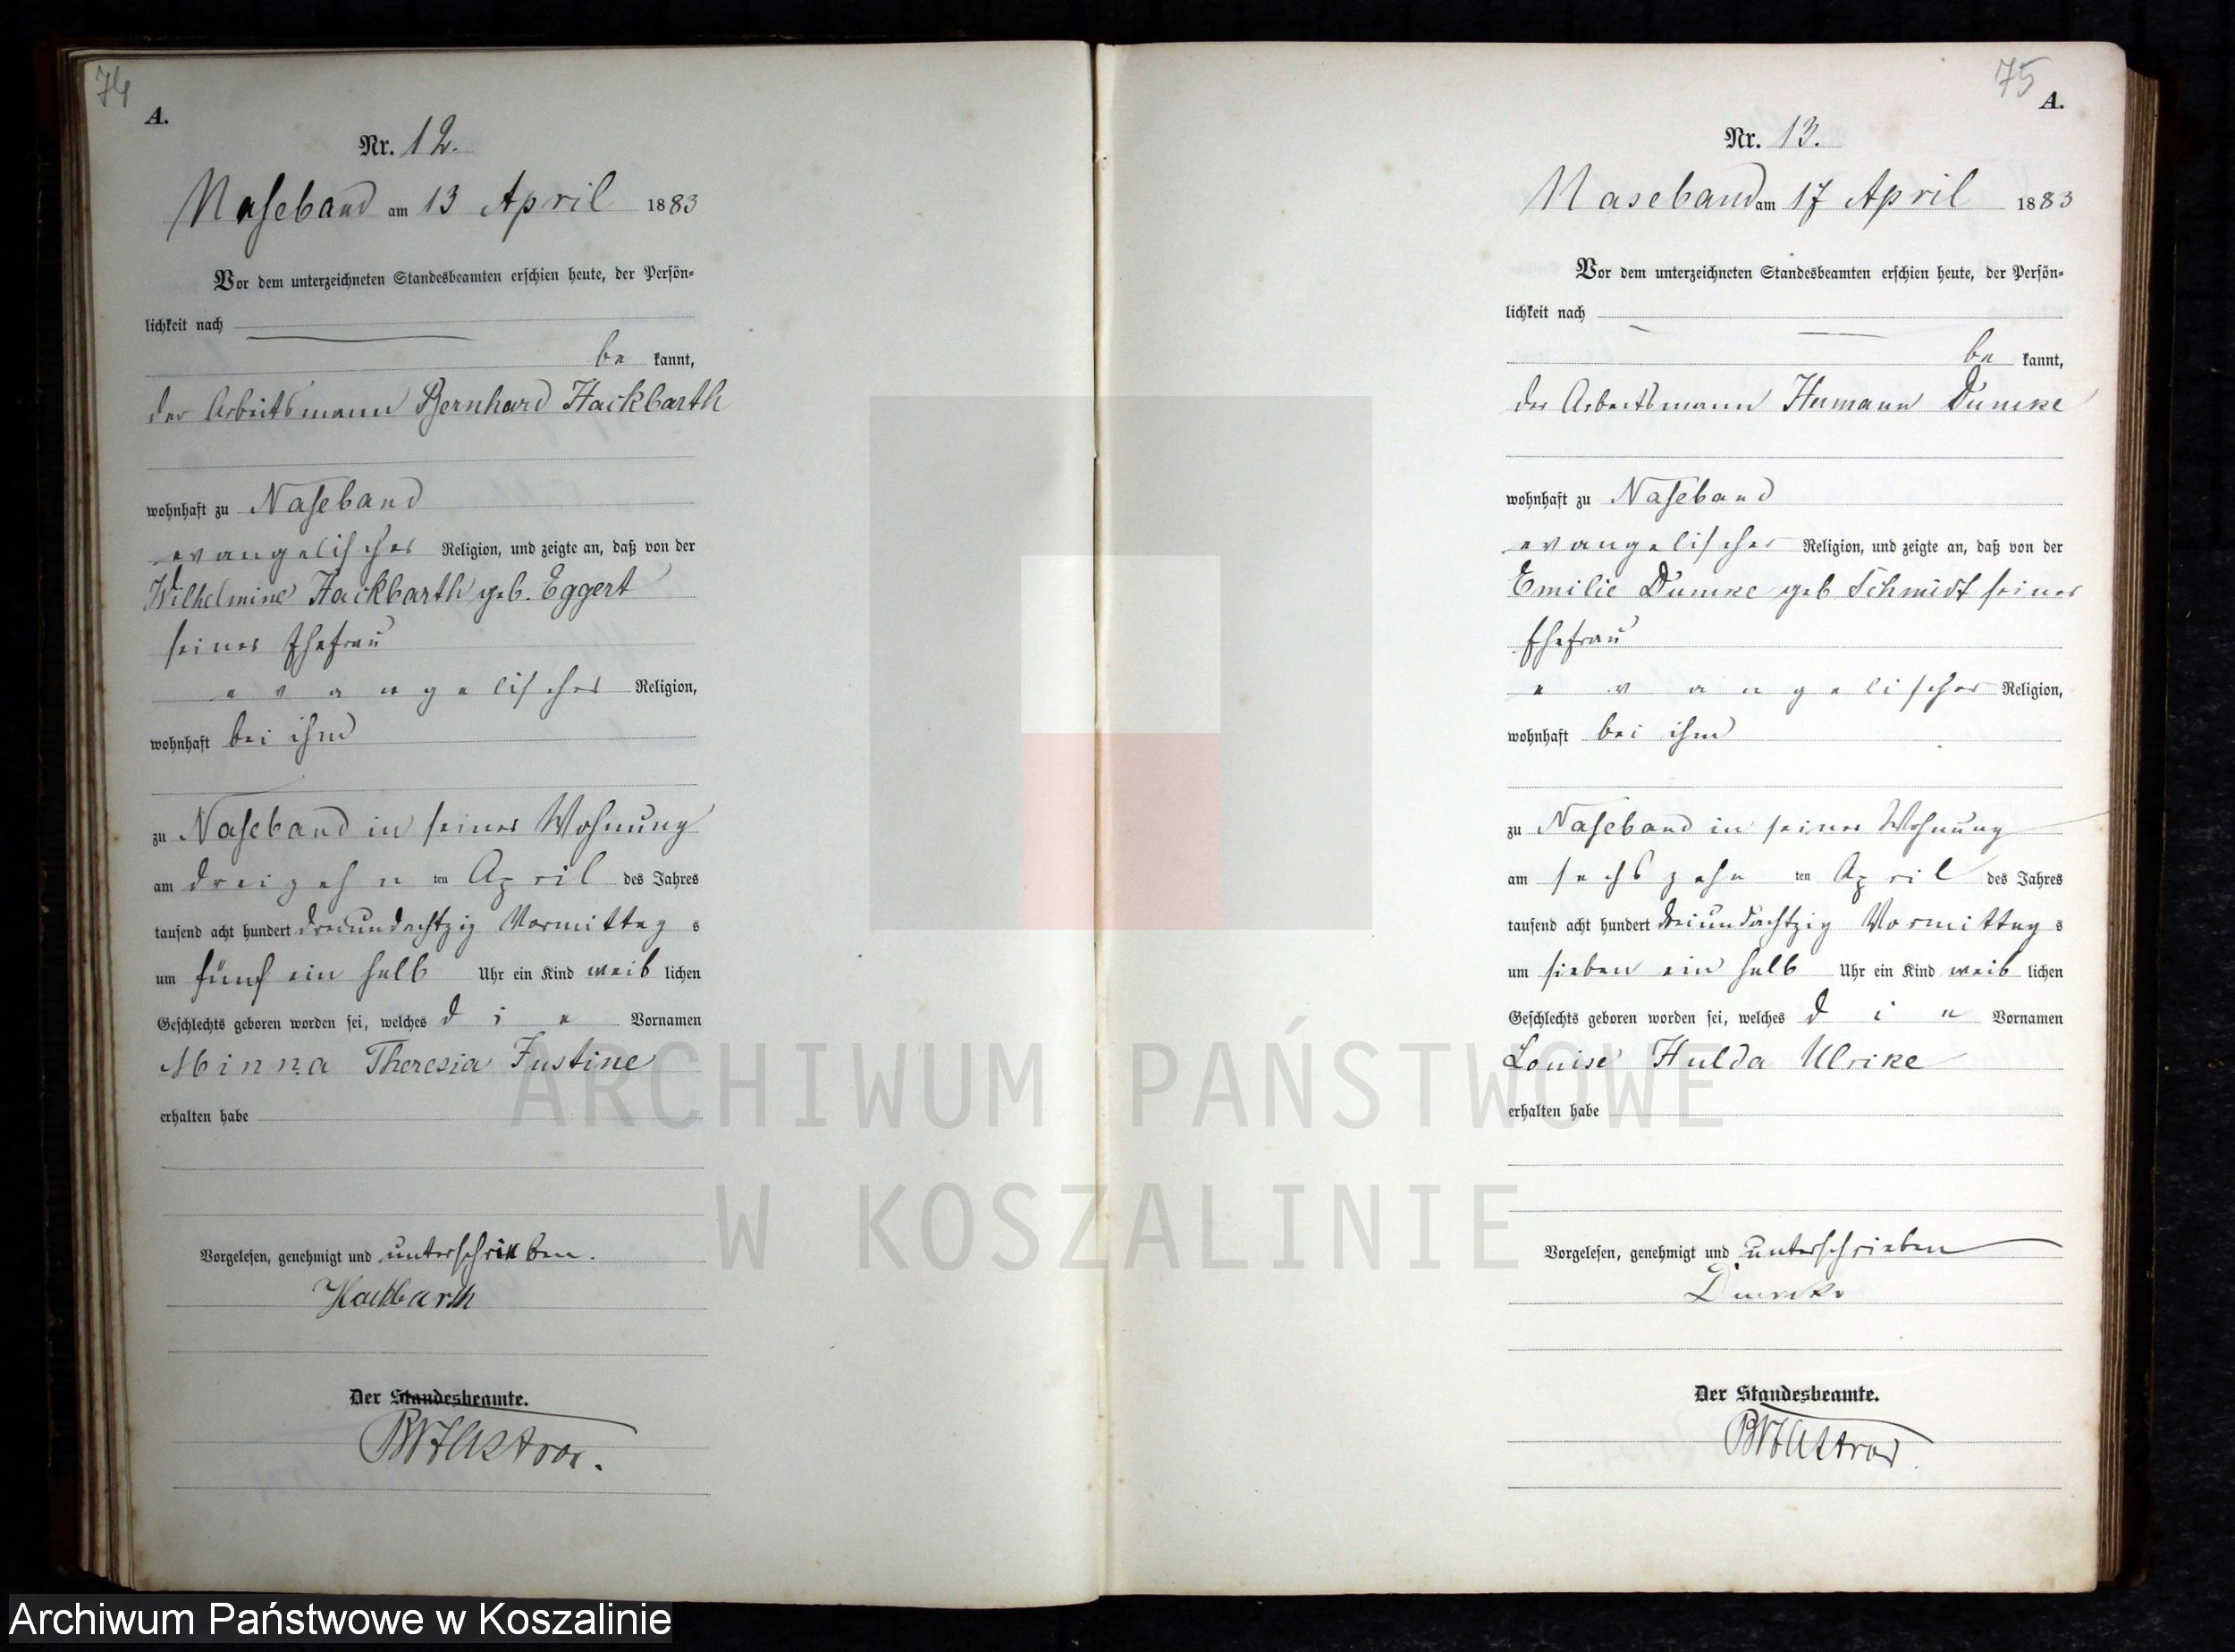 74
A.
Nr. 12.
Naseband am 13 April 1883
Vor dem unterzeichneten Standesbeamten erschien heute, der Persön-
lichkeit nach
be kannt,
der Arbeitsmann Bernhard Hackbarth
wohnhaft zu Naseband
evangelischer Religion, und zeigte an, daß von der
Wilhelmine Hackbarth geb. Eggert
seiner Ehefrau
evangelischer Religion,
wohnhaft bei ihm
zu Naseband in seiner Wohnung
am dreizehn ten April des Jahres
tausend acht hundert dreiundachtzig Vormittag s
um fünf ein halb Uhr ein Kind weib lichen
Geschlechts geboren worden sei, welches die Vornamen
Minna Theresia Justine
erhalten habe
Vorgelesen, genehmigt und unterschrieben.
Hackbarth
Der Standesbeamte.
75
A.
Nr. 13.
Naseband am 17 April 1883
Vor dem unterzeichneten Standesbeamten erschien heute, der Persön-
lichkeit nach
be kannt,
der Arbeitsmann Hermann Dumke
wohnhaft zu Naseband
evangelischer Religion, und zeigte an, daß von der
Emilie Dumke geb Schmidt seiner
Ehefrau
evangelischer Religion,
wohnhaft bei ihm
zu Naseband in seiner Wohnung
am sechszehn ten April des Jahres
tausend acht hundert dreiundachtzig Vormittag s
um sieben ein halb Uhr ein Kind weib lichen
Geschlechts geboren worden sei, welches die Vornamen
Louise Hulda Ulrike
erhalten habe
Vorgelesen, genehmigt und unterschrieben
Dumke
Der Standesbeamte.
ARCHIWUM PAŃSTWOWE
W KOSZALINIE
Archiwum Państwowe w Koszalinie